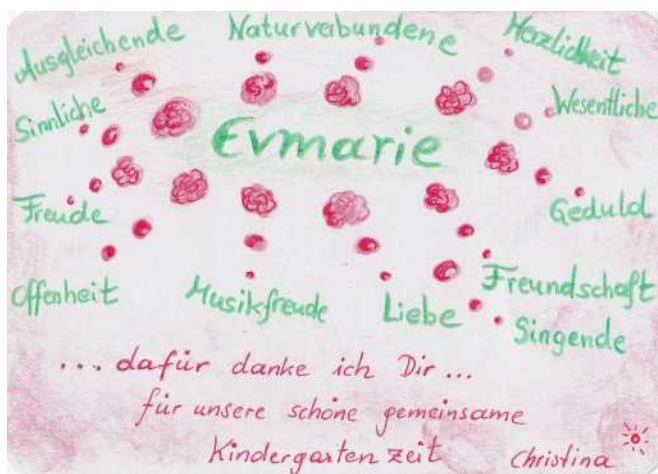 Ausgleichende
Naturverbundene
Herzlichkeit
Sinnliche
Wesentliche
Evmarie
Freude
Geduld
Offenheit
Musikfreude
Liebe
Freundschaft
Singende
... dafür danke ich Dir ...
für unsere schöne gemeinsame
Kindergarten zeit
Christina